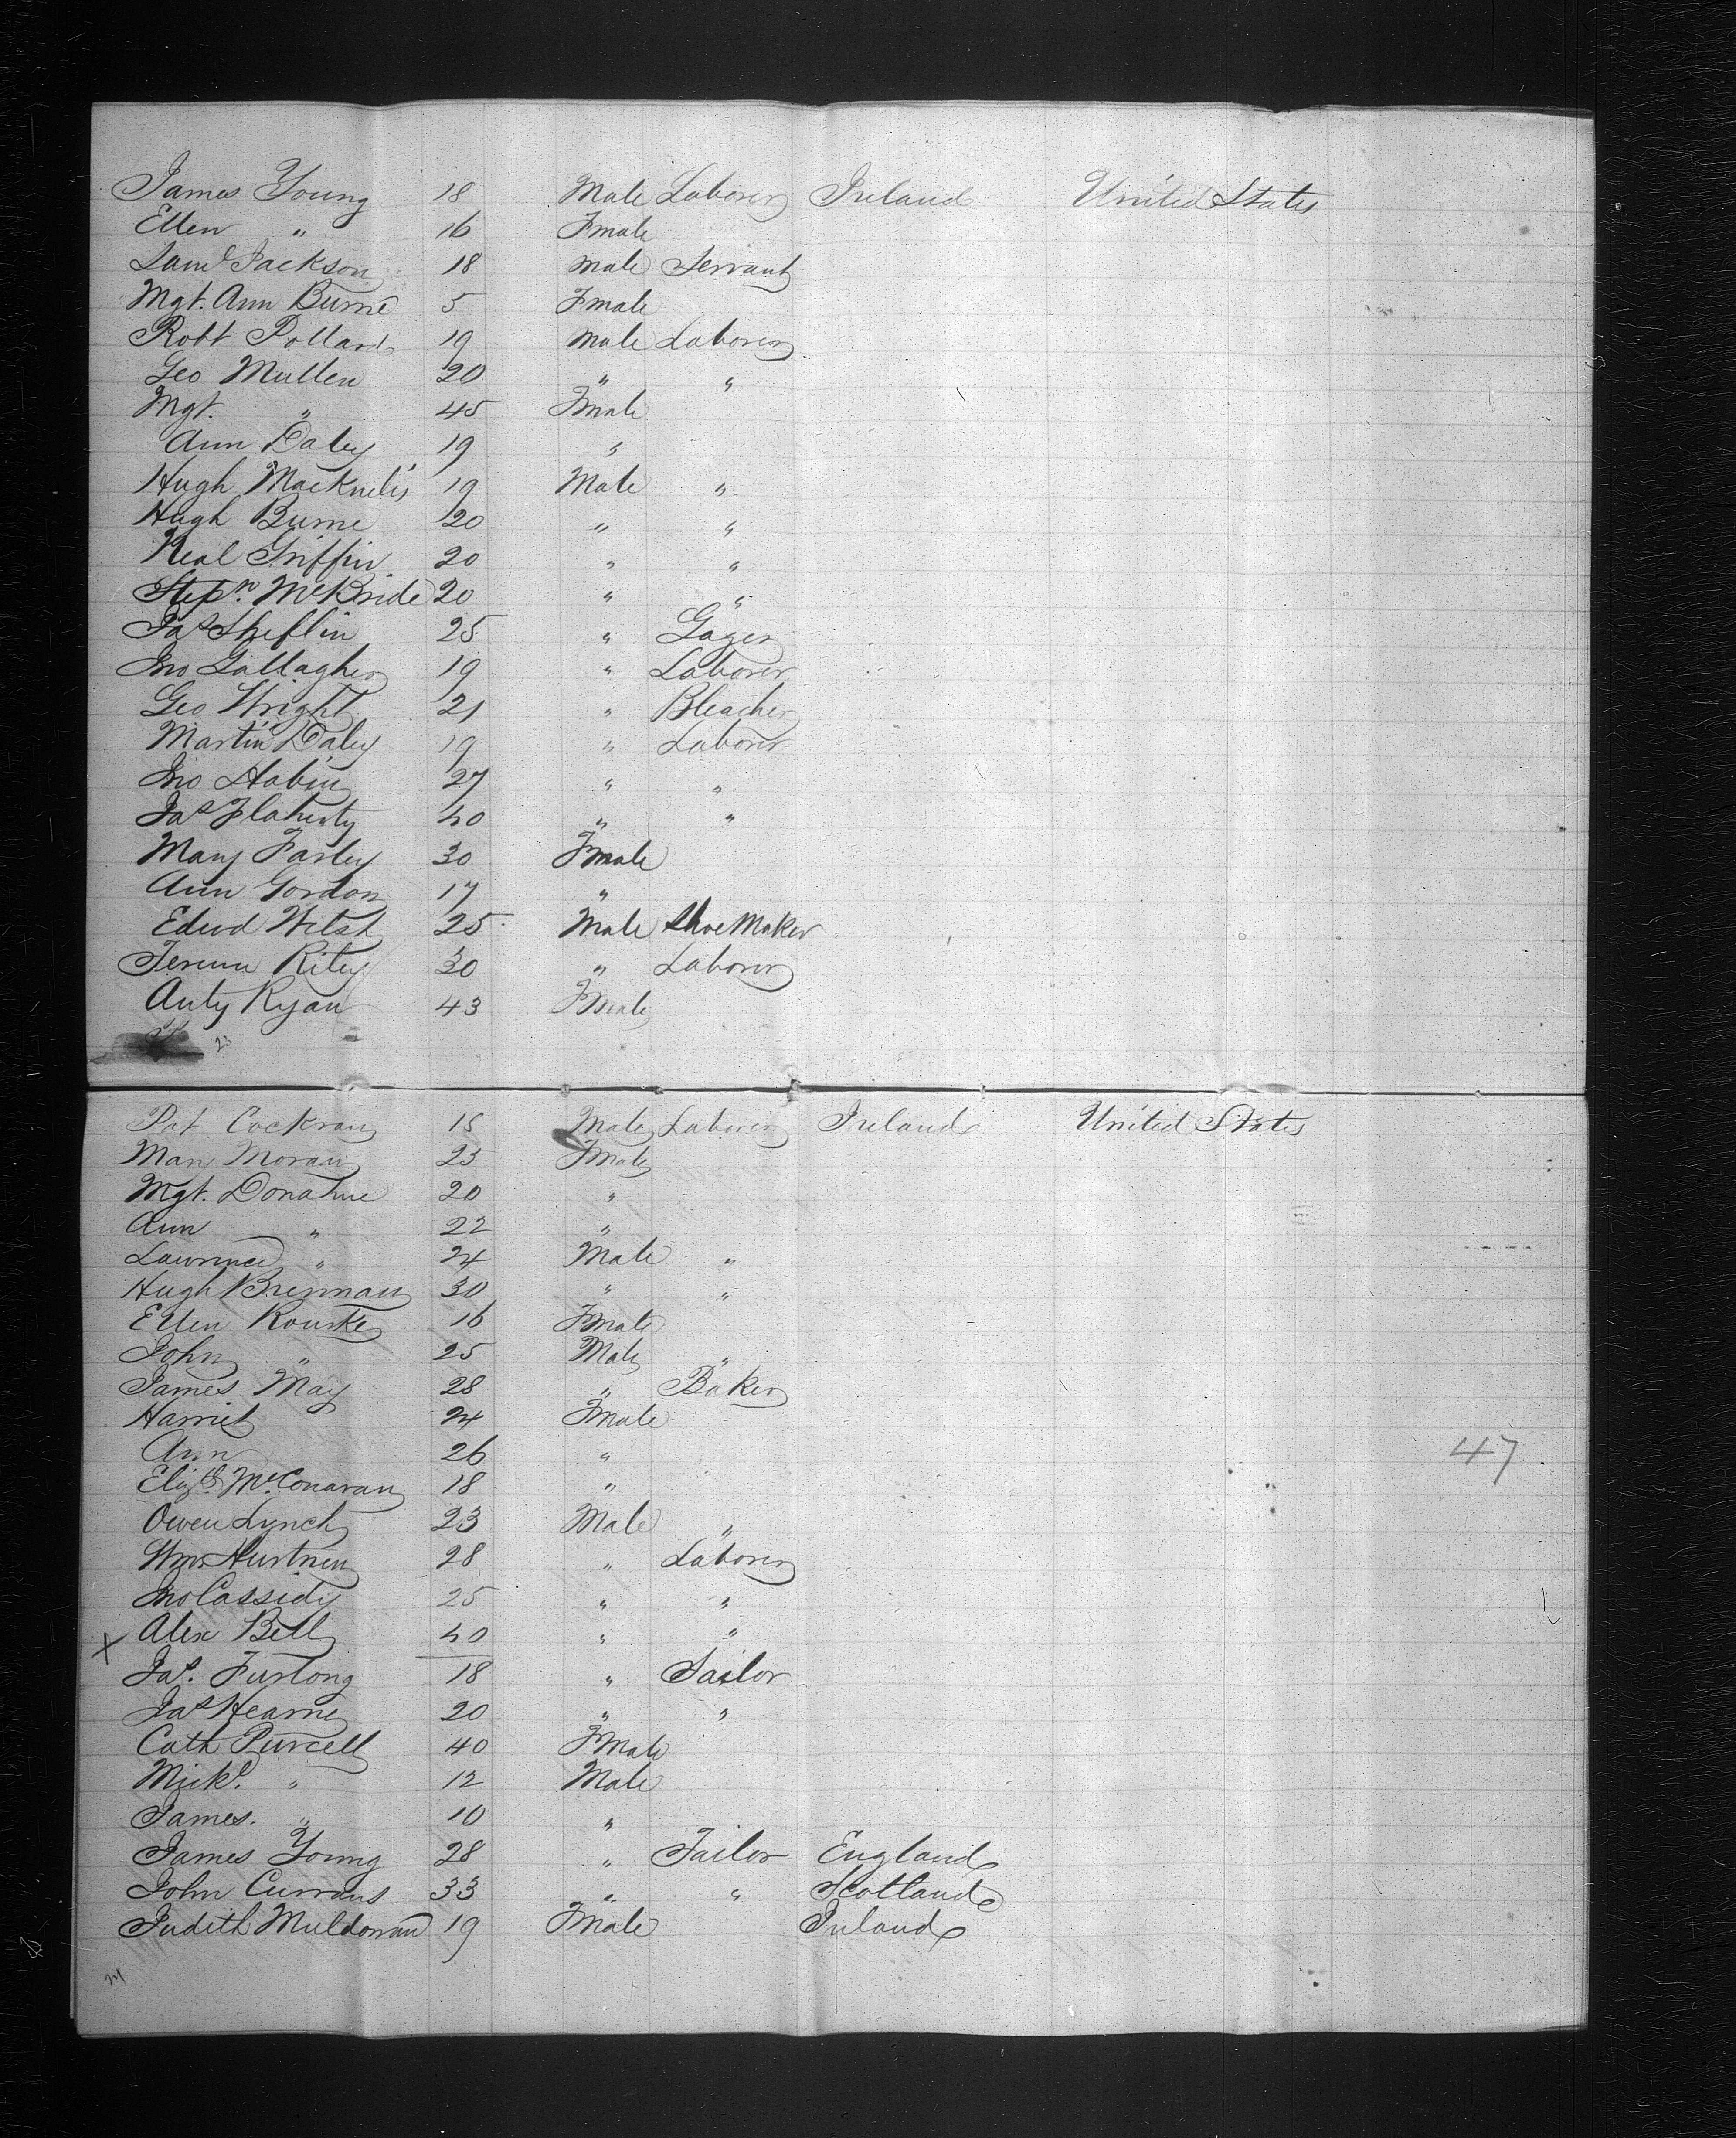 James Young 18 Male Laborer Ireland United States
Ellen " 16 Fmale
Saml Jackson 18 male Servant
Mgt. Ann Burne 5 Fmale
Robt Pollard 19 male Laborer
Geo Mullen 20 " "
Mgt. " 45 Fmale
Ann Daley 19 "
Hugh 19 Male "
Hugh Burne 20 " "
Neal Griffin 20 " "
Stepn. McBride 20 " "
Jas Sheflin 25 "
Jno Gallagher 19 " Laborer
Geo Wright 21 " Bleacher
Martin Daley 19 " Laborer
Jno Habin 27 " "
Jas Flaherty 40 " "
Mary Farley 30 Fmale
Ann Gordon 17 "
Edwd Welsh 25 Male Shoe Maker
Terence Riley 30 " Laborer
Anty Ryan 43 Fmale
23
Pat Cockran 15 Male Laborer Ireland United States
Mary Moran 25 Fmale
Mgt. Donahue 20 "
Ann " 22 "
Lawrence " 24 Male "
Hugh Brennan 30 " "
Ellen Rourke 16 Fmale
John " 25 Male "
James May 28 " Baker
Harriet 24 Fmale
Ann 26 "
47
Elizth. McConaran 18 "
Owen Lynch 23 Male "
Wm 28 " Laborer
Jno Cassidy 25 " "
X Alex Bell 40 " "
Jas. Furlong 18 " Sailor
Jas Hearne 20 " "
Cath Purcell 40 Fmale
Mickl. " 12 Male
James. " 10 "
James Young 28 " Tailor England
John Currans 33 " " Scotland
Judith Muldoran 19 Fmale Ireland
24